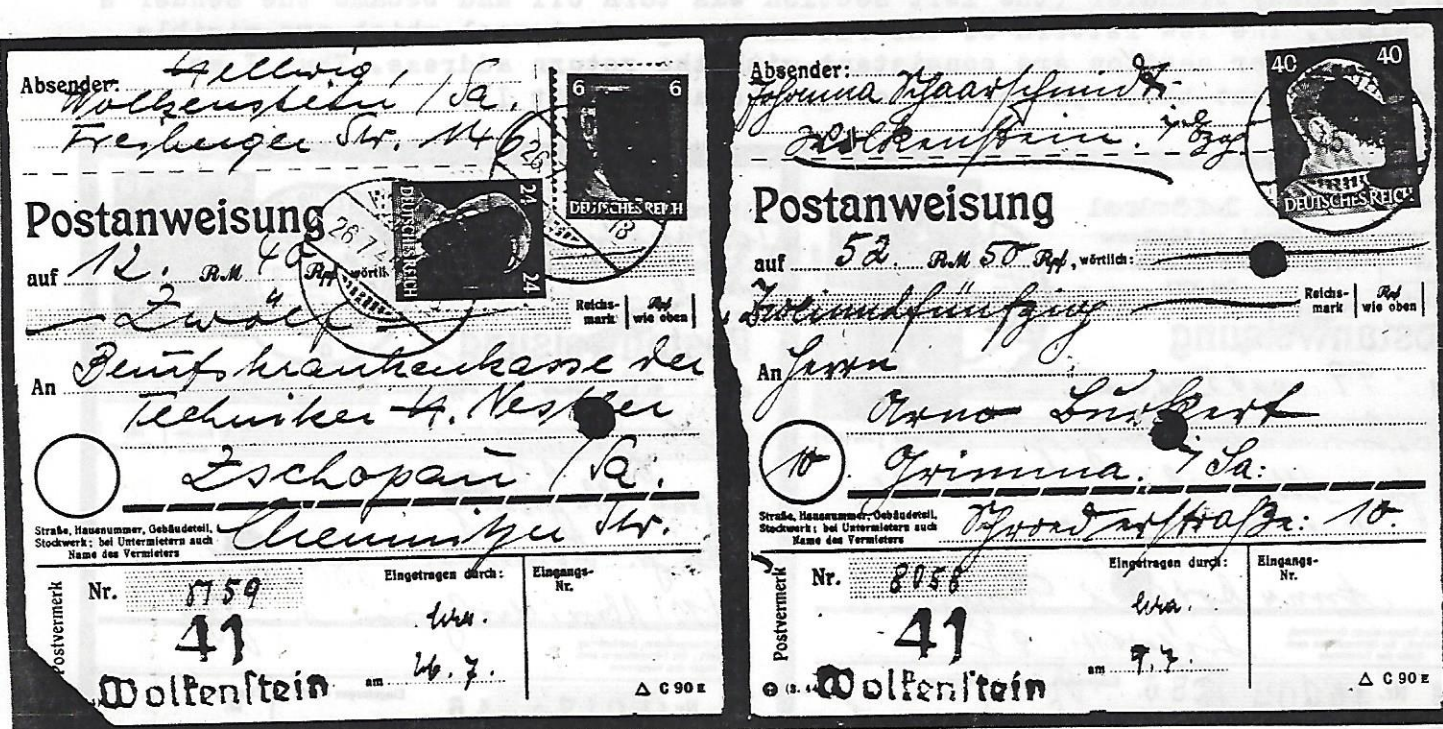 Absender:
Hellwig,
Wolkenstein /Sa.
Freiberger Str. 146
6 6
DEUTSCHES REICH
Postanweisung
26.7.
24
24
DEUTSCHES REICH
18
auf 12. RM 40 Rpf, wörtlich:
Zwölf
Reichsmark
Rpf wie oben
An Berufskrankenkasse der
Techniker H. Nestler
Zschopau /Sa.
Straße, Hausnummer, Gebäudeteil,
Stockwerk; bei Untermietern auch
Name des Vermieters
Chemnitzer Str.
Postvermerk
Nr. 8159
Eingetragen durch:
Eingangs-
Nr.
41
am 26.7.
Wolkenstein
C 90 E
Absender:
Johanna Schaarschmidt
Wolkenstein. / Ezg.
40 40
DEUTSCHES REICH
Postanweisung
auf 52 RM 50 Rpf, wörtlich:
Zweiundfünfzig
Reichs-
mark
Rpf
wie oben
An Herrn
Arno Burkert
10 Grimma. / Sa:
Straße, Hausnummer, Gebäudeteil,
Stockwerk; bei Untermietern auch
Name des Vermieters
Schroederstraße: 10.
Postvermerk
Nr. 8058
Eingetragen durch:
Eingangs-
Nr.
41
am 9.7.
Wolkenstein
C 90 E